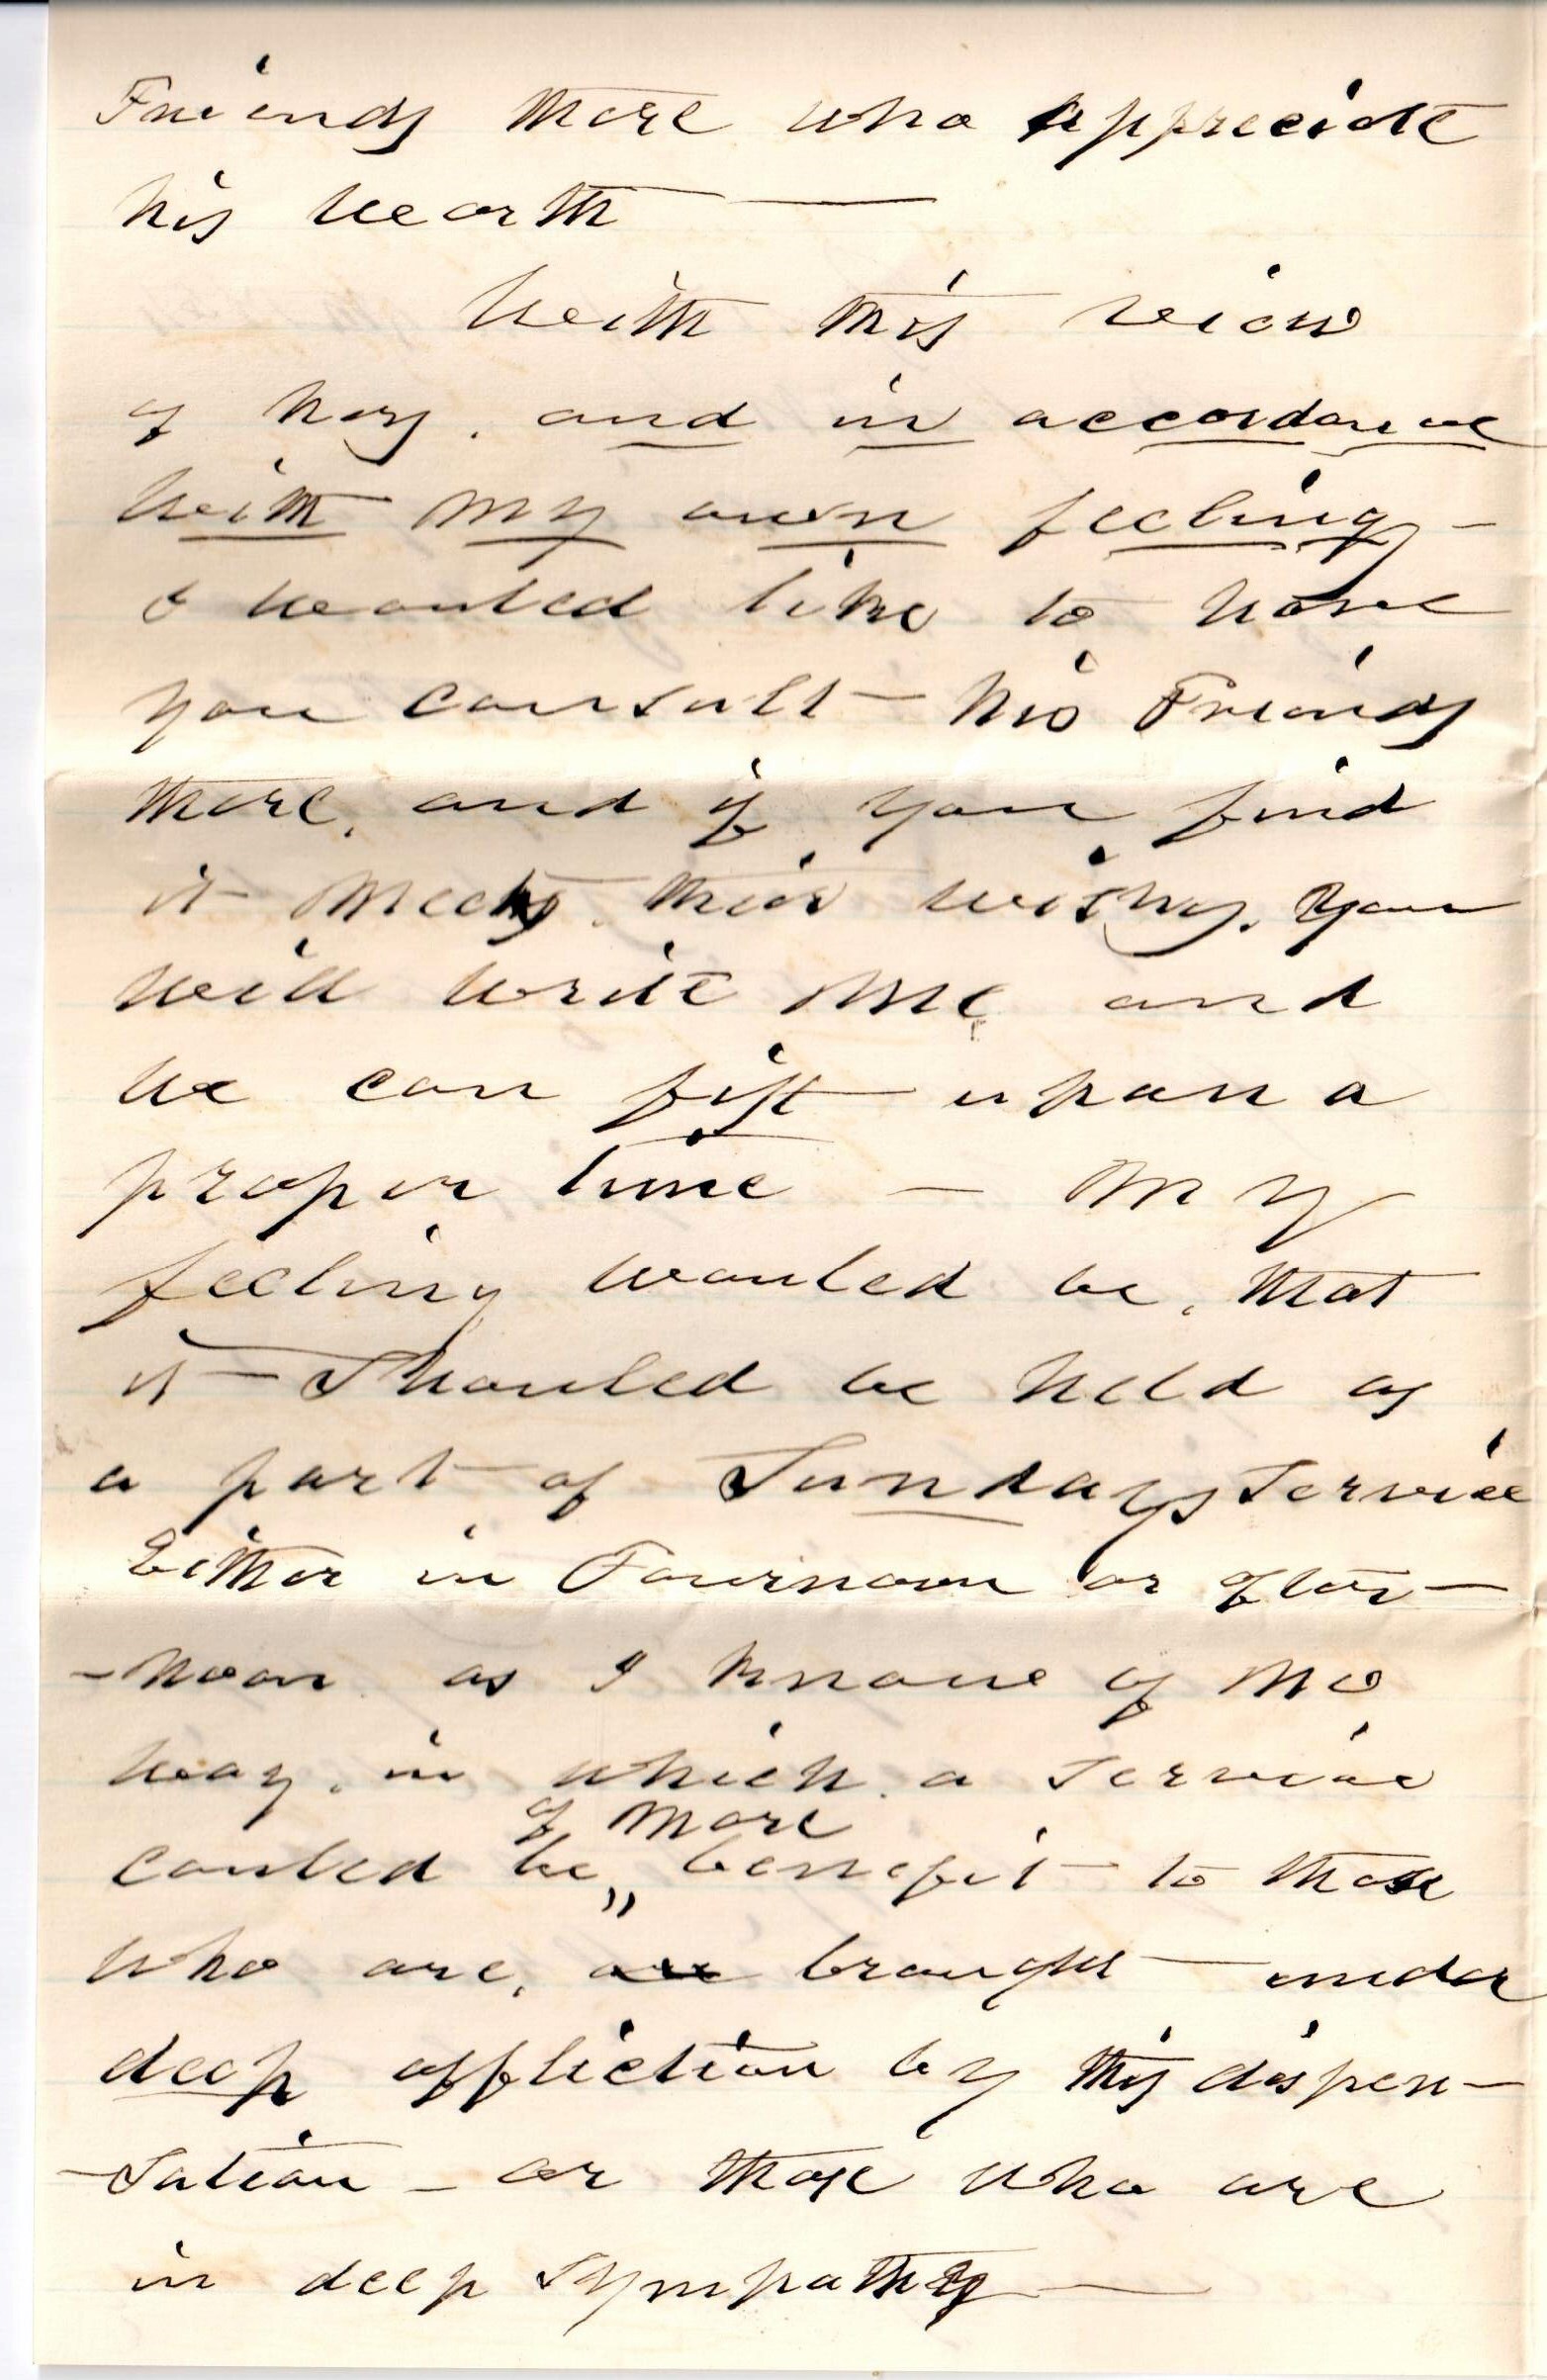 Friends there who appreciate
his worth —
With this view
of hers, and in accordance
with my own feelings –
I would like to have
you consult – his Friends
there, and if you find
it meets their wishes, you
will write me and
we can fix upon a
proper time – My
feeling would be, that
it – Should be held as
a part of Sundays Service
Either in Fournoon or after–
–noon as I know of no
way, in which a Service
of more
could be „ benefit to those
who are, are brought under
deep affliction by this dispen–
–sation – or those who are
in deep Sympathy —